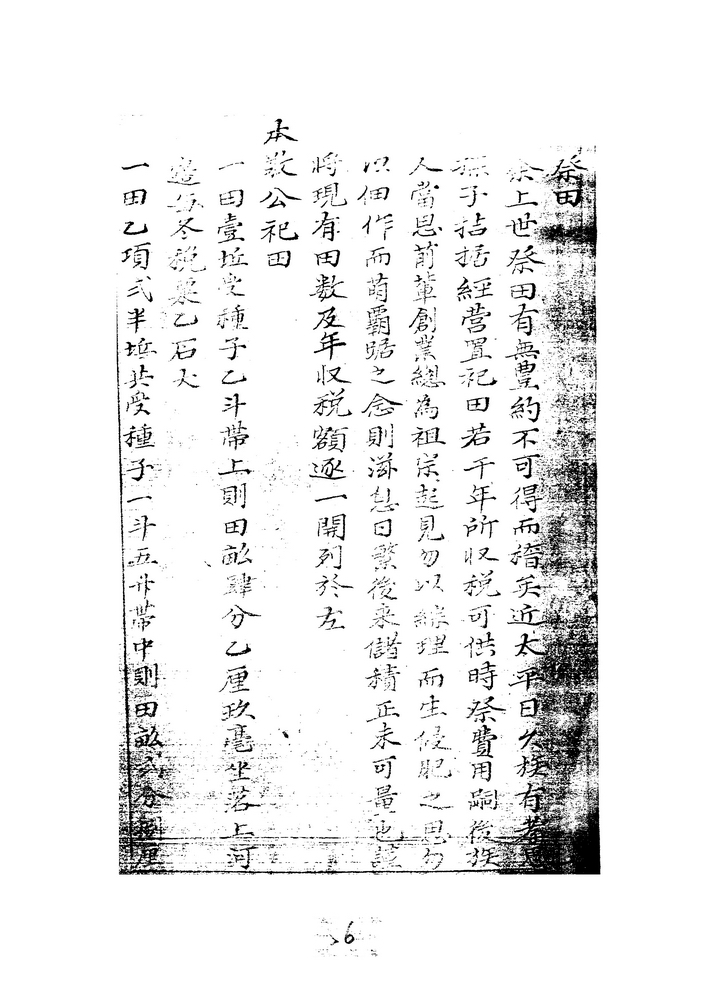 祭田
余上世祭田有無豊約不可得而稽矣近太平日久族有
孫子拮据經营置祀田若干年所収税可供時祭費用嗣後族
人當思前輩創業總為祖宗起見勿以綜理而生侵肥之思勿
以佃作而萌覇踞之念則滋息日繁後来儲積正未可量也謹
将現有田数及年収税额逐一開列於左
本敦公祀田
一田壹坵受種子乙斗帶上則田畝肆分乙厘玖毫坐落上河
邉每冬税粟乙石大
一田乙項弍半坵共受種子一斗五升帶中則田畝弍分捌厘
6